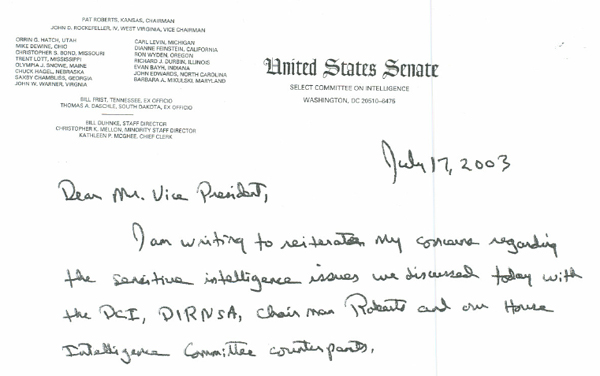 PAT ROBERTS, KANSAS, CHAIRMAN
JOHN D. ROCKEFELLER, IV, WEST VIRGINIA, VICE CHAIRMAN
ORRIN G. HATCH, UTAH
MIKE DEWINE, OHIO
CHRISTOPHER S. BOND, MISSOURI
TRENT LOTT, MISSISSIPPI
OLYMPIA J. SNOWE, MAINE
CHUCK HAGEL, NEBRASKA
SAXBY CHAMBLISS, GEORGIA
JOHN W. WARNER, VIRGINIA
CARL LEVIN, MICHIGAN
DIANNE FEINSTEIN, CALIFORNIA
RON WYDEN, OREGON
RICHARD J. DURBIN, ILLINOIS
EVAN BAYH, INDIANA
JOHN EDWARDS, NORTH CAROLINA
BARBARA A. MIKULSKI, MARYLAND
BILL FRIST, TENNESSEE, EX OFFICIO
THOMAS A. DASCHLE, SOUTH DAKOTA, EX OFFICIO
BILL DUHNKE, STAFF DIRECTOR
CHRISTOPHER K. MELLON, MINORITY STAFF DIRECTOR
KATHLEEN P. MCGHEE, CHIEF CLERK
United States Senate
SELECT COMMITTEE ON INTELLIGENCE
WASHINGTON, DC 20510–6475
July 17, 2003
Dear Mr. Vice President,
I am writing to reiterate my concerns regarding
the sensitive intelligence issues we discussed today with
the DCI, DIRNSA, Chairman Roberts and our House
Intelligence Committee counterparts.